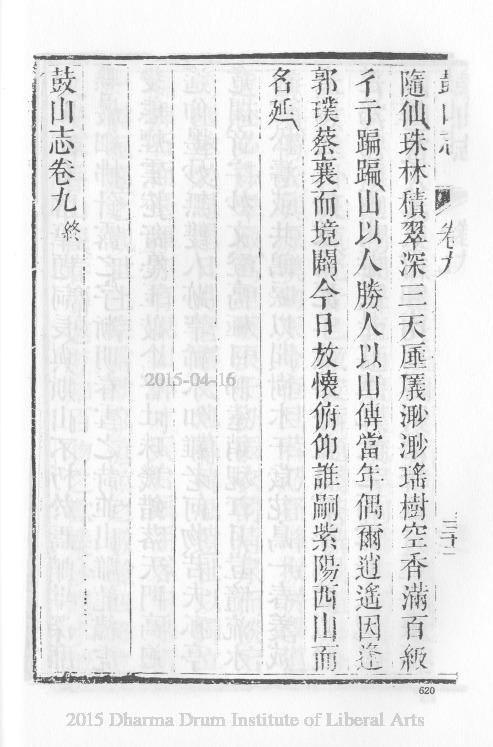 鼓山志
卷九
三十二
隨仙、珠林積翠深三天匝㕒渺渺瑤樹空香滿百級
彳亍蹁蹁、山以人勝人以山傳當年偶爾逍遙因逢
郭璞蔡襄而境闢、今日放懷俯仰誰嗣紫陽西山而
名延、
鼓山志卷九 終
2015-04-16
620
2015 Dharma Drum Institute of Liberal Arts